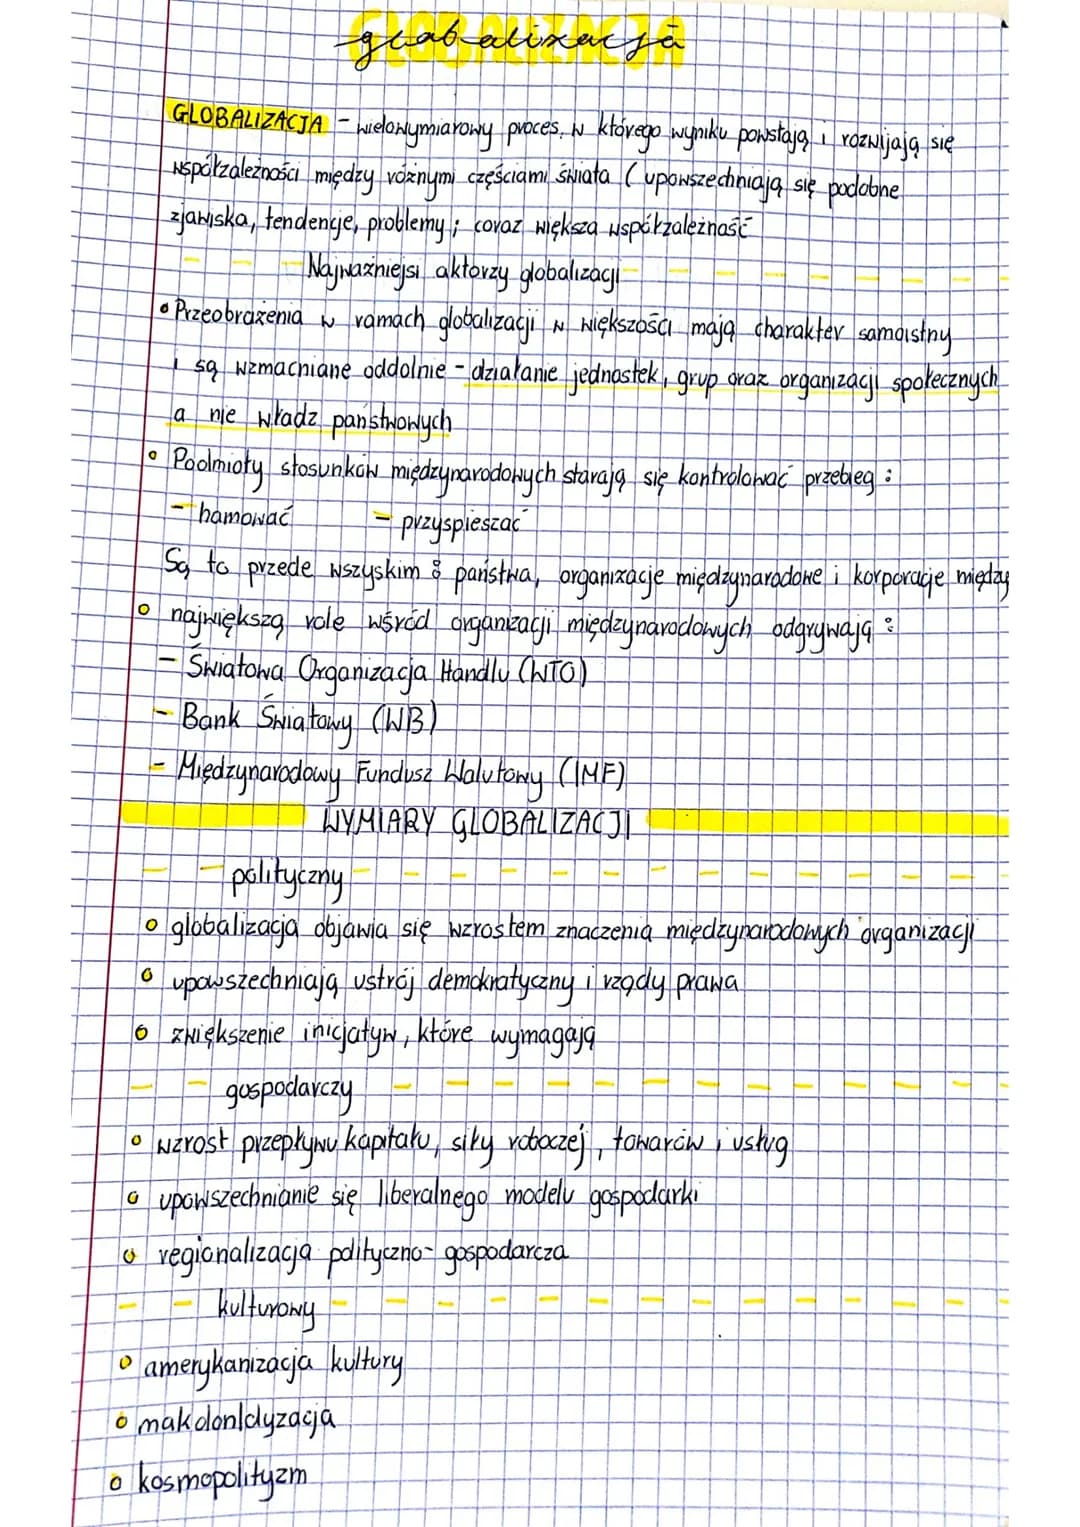 globalizacja
GLOBALIZACJA - wielowymiarowy proces, w którego wyniku powstają i rozwijają się
współzależności między różnymi częściami świata (upowszechniają się podobne
zjawiska, tendencje, problemy; coraz większa współzależność
Najważniejsi aktorzy globalizacji
• Przeobrażenia w ramach globalizacji w większości mają charakter samoistny
i są wzmacniane oddolnie - działanie jednostek, grup oraz organizacji społecznych
a nie władz państwowych
• Podmioty stosunków międzynarodowych starają się kontrolować przebieg:
- hamować - przyspieszać
Są to przede wszyskim: państwa, organizacje międzynarodowe i korporacje między
• największą role wśród organizacji międzynarodowych odgrywają:
- Światowa Organizacja Handlu (WTO)
- Bank Światowy (WB)
- Międzynarodowy Fundusz Walutowy (IMF)
WYMIARY GLOBALIZACJI
polityczny
• globalizacja objawia się wzrostem znaczenia międzynarodowych organizacji
• upowszechniają ustrój demokratyczny i rządy prawa
• zwiększenie inicjatyw, które wymagają
gospodarczy
• wzrost przepływu kapitału, siły roboczej, towarów i usług
• upowszechnianie się liberalnego modelu gospodarki
• regionalizacja polityczno-gospodarcza
kulturowy
• amerykanizacja kultury
• makdonldyzacja
• kosmopolityzm